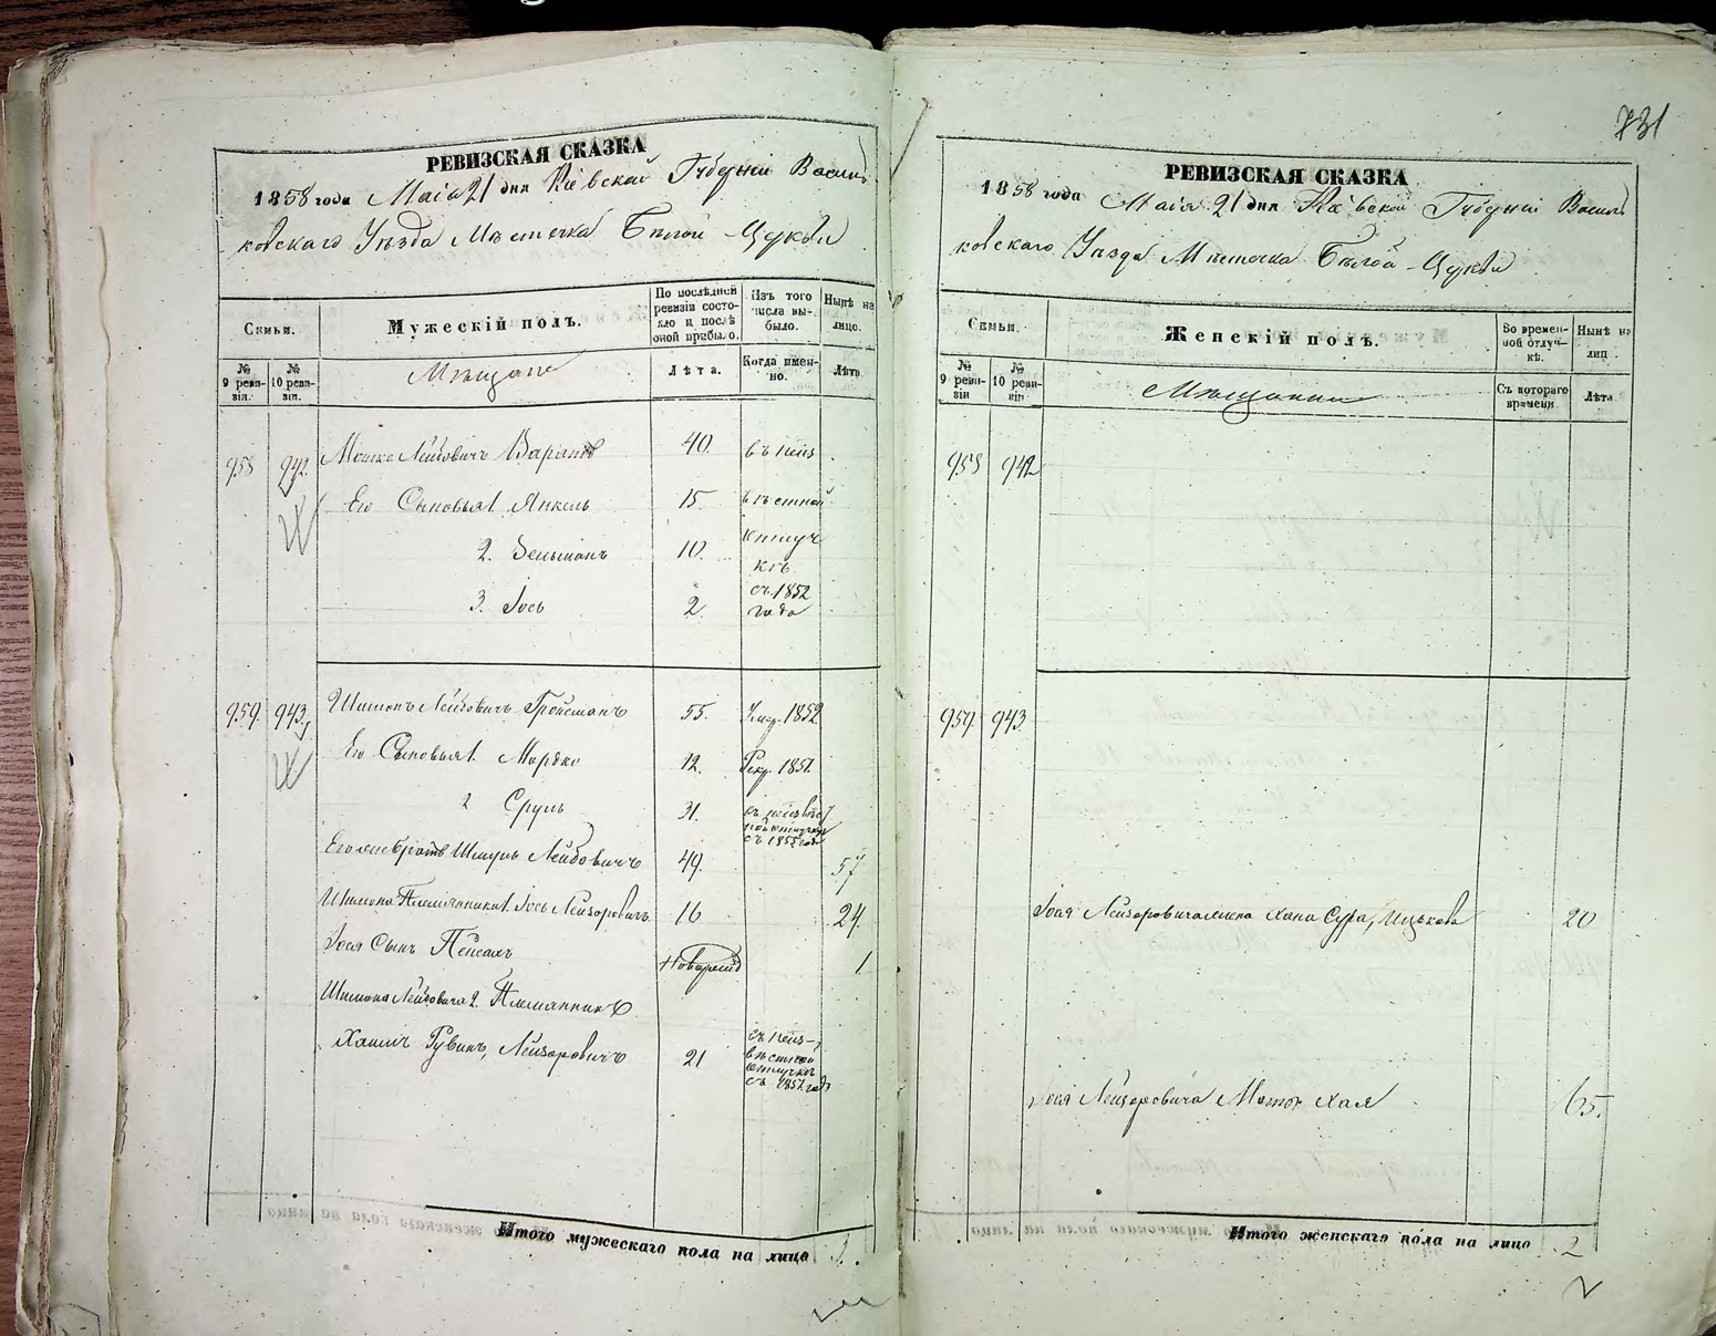 731
РЕВИЗСКАЯ СКАЗКА
1858 года Маія 21 дня Кіевской Губерніи Василь
ковскаго Уѣзда Мѣстечка Бѣлой-Церкви
Семьи.
Мужескій полъ.
По послѣдней ревизіи состояло и послѣ оной прибыло.
Изъ того числа выбыло.
Нынѣ на лицо.
№ 9 ревизіи.
№ 10 ревизіи.
Мѣщане
Лѣта.
Когда именно.
Лѣта
958 942 Мошко Лейбовичъ 40. въ неиз
Его Сыновья 1. Янкель 15 вѣстной
2. Зельманъ 10. отлуч
кѣ
3. Іось 2. съ 1852
года
959. 943. Шимонъ Лейбовичъ Гройсманъ 55. Умер. 1852
Его Сыновья 1. Мордко 12. Рекр. 1851.
2 Сруль 31. въ неизвѣст
ной отлучкѣ
съ 1855 года
Шмуль Лейбовичъ 49. 57
Шимона Племянники 1. Іось Лейзоровичъ 16 24.
Іося Сынъ Пейсахъ Новорожд 1
Шимона Лейбовича 2. Племянникъ
Хаимъ Рувинъ, Лейзоровичъ 21 въ неиз-
вѣстной
отлучкѣ
съ 1857 года
Итого мужескаго пола на лицо 3.
РЕВИЗСКАЯ СКАЗКА
1858 года Маія 21 дня Кіевской Губерніи Василь
ковскаго Уѣзда Мѣстечка Бѣлой-Церкви
Семьи.
Женскій полъ.
Во временной отлучкѣ.
Нынѣ на лицо.
№ 9 ревизіи
№ 10 ревизіи
Мѣщанки
Съ котораго времени
Лѣта
958 942
959. 943.
Іося Лейзоровича жена Хана Сура, Ицькова 20
Іося Лейзоровича Мать Хая 65.
Итого женскаго пола на лицо 2